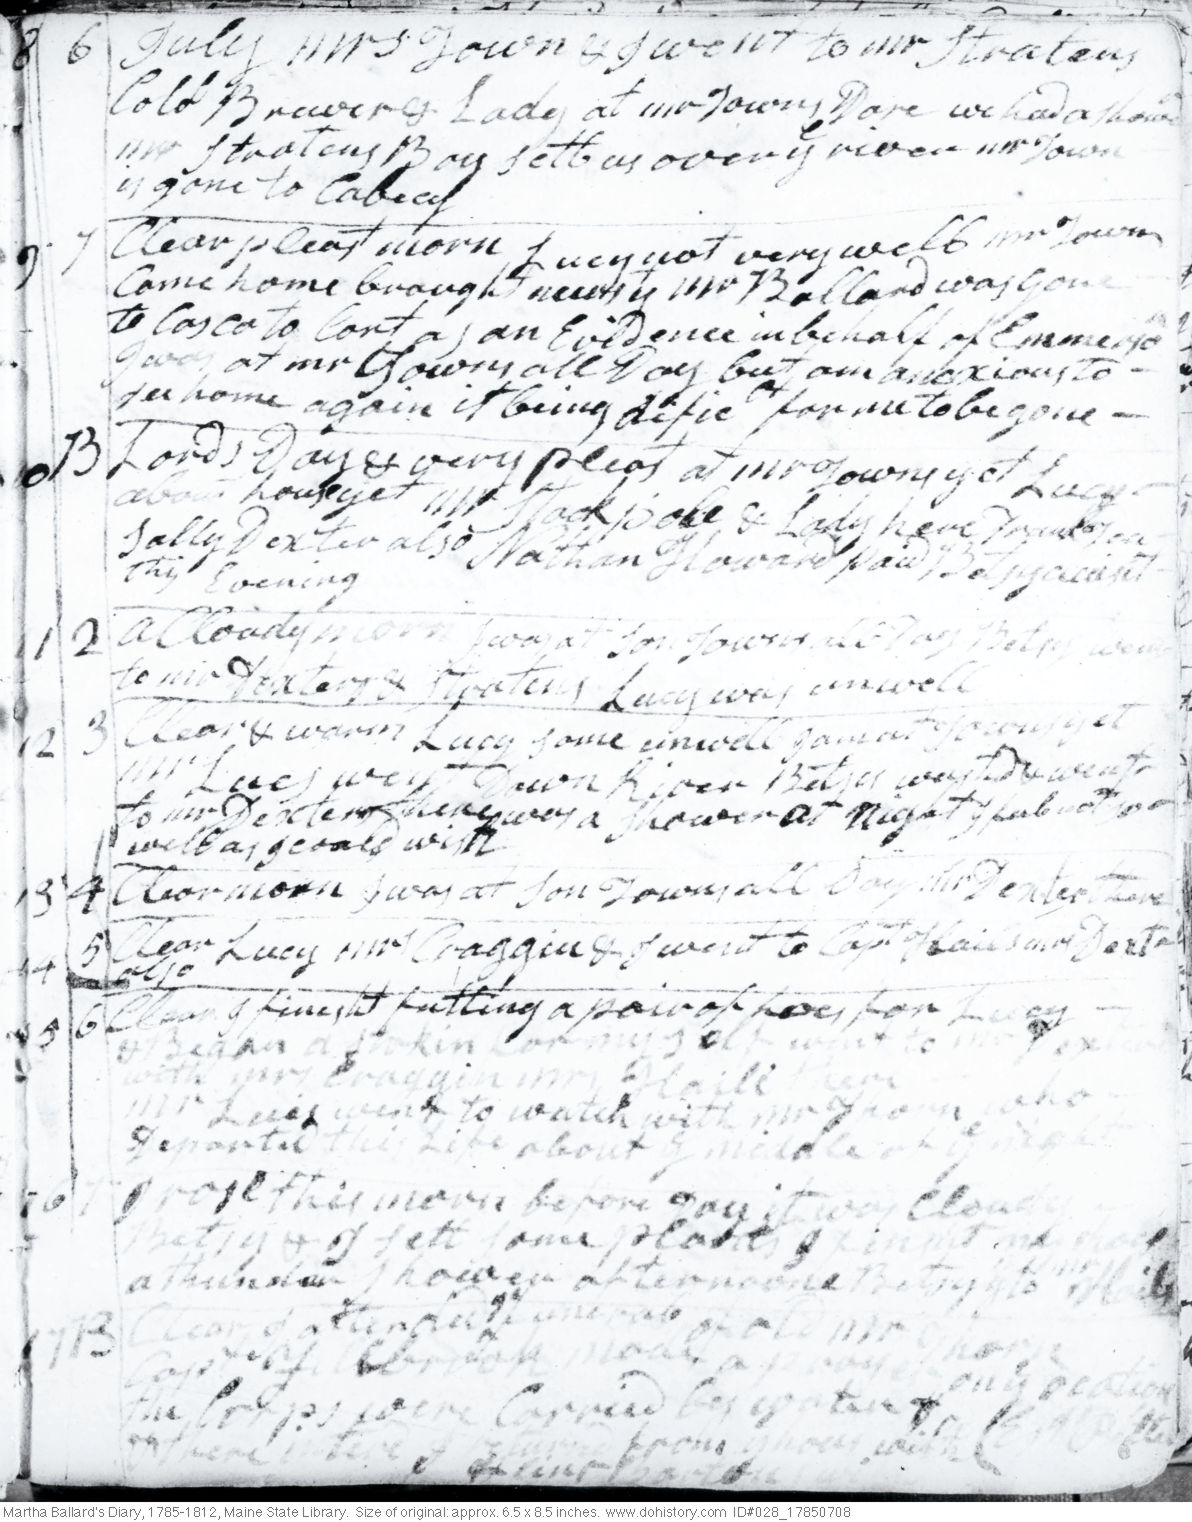 8 6 July mrs Town & I went to mr Stratens
Colo Brewer & Lady at mr Towns Dare we had a shower
mr Stratens Boy sett us over ye river mr Town
is gone to Cabecy
9 7 Clear pleast morn Lucy not very well mr Town
Came home brought news yt mr Ballard was gone
to Casco to Cort as an Evidence in behalf of Emmerson
I was at mr Towns all Day but am anexious to
see home again it being dific lt for me to be gone
10 B Lords Day & very pleast at mr Towns yet Lucy
about house yet mr Stackpole & Lady here Drink Tea
Sally Dexter also Nathan Howard paid Betsy a visit
this Evening
11 2 a Cloudy morn I was at Son Towns all Day Betsy went
to mr Dexters & Stratens Lucy was unwell
12 3 Clear & warm Lucy some unwell I am at Towns yet
mr Lues went Down River Betsy washd & went
to mr Dexters there was a Shower at Night I feel not so
well as I coald wish
13 4 Clear morn I was at Son Towns all Day Mr Dexter there
14 5 Clear Lucy mrs Craggin & I went to Capt Hails mrs Dexter
also
15 6 Clear I finisht futting a pair of hoes for Lucy
& Began a stokin for my self went to mr Dexters
with mrs Craggin mrs Haile there
mr Lues went to watch with mr Thorn who
Departed this Life about ye midle of ye night
16 7 I rose this morn before Day it was Cloudy
Betsy & I sett some plants
a thunder shower afternoone Betsy to mr Hails
17 B Clear I attended funeral of old mr Thorn
Capt made a prayer on ye ocation
the Corps were Carried by water
from